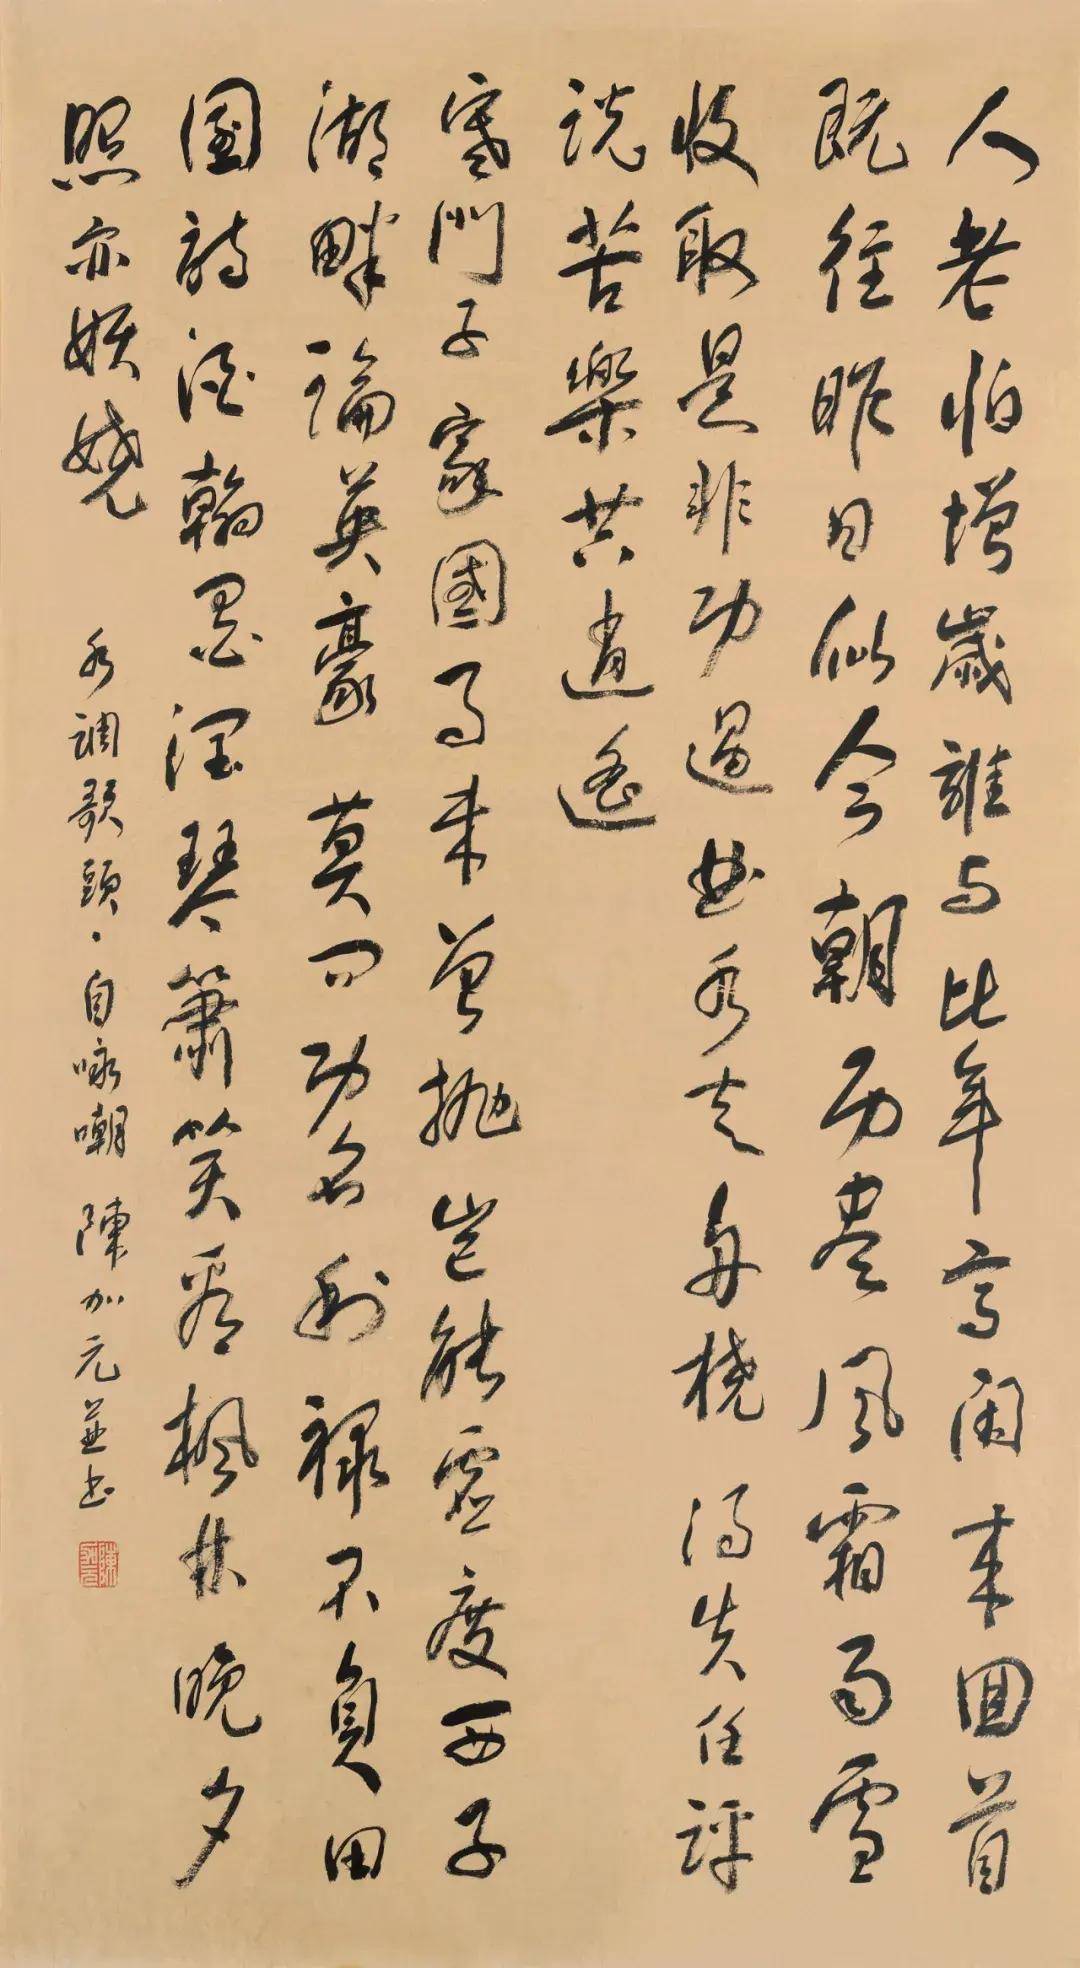 人老怕增歲誰与比年高闲来回首
既往昨日似今朝历尽風霜雨雪
收取是非功過曲水舟橈得失任評
説苦樂共逍遥
寒門子家國事未曾抛豈能虚度西子
湖畔論英豪莫问功名利禄不負田
園詩酒翰墨琴簫笑看楓林晚夕
照亦妖嬈
水調歌頭·自咏嘲 陳加元並书
陳加元